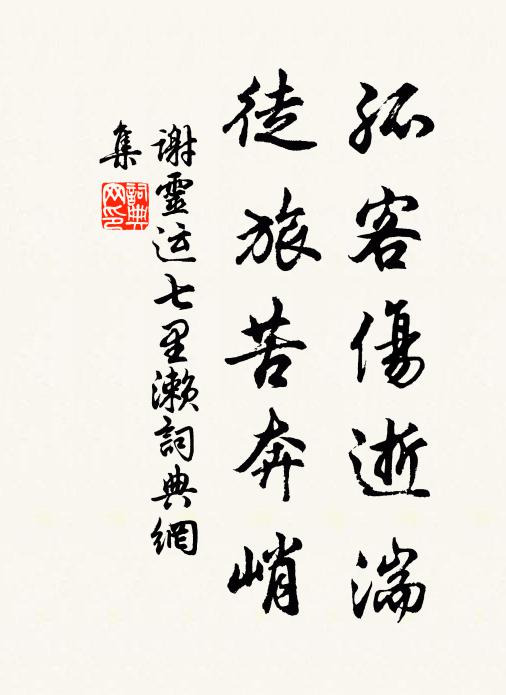 孤客傷逝湍
徒旅苦奔峭
謝靈运七里濑詞典網
集
詞典网印